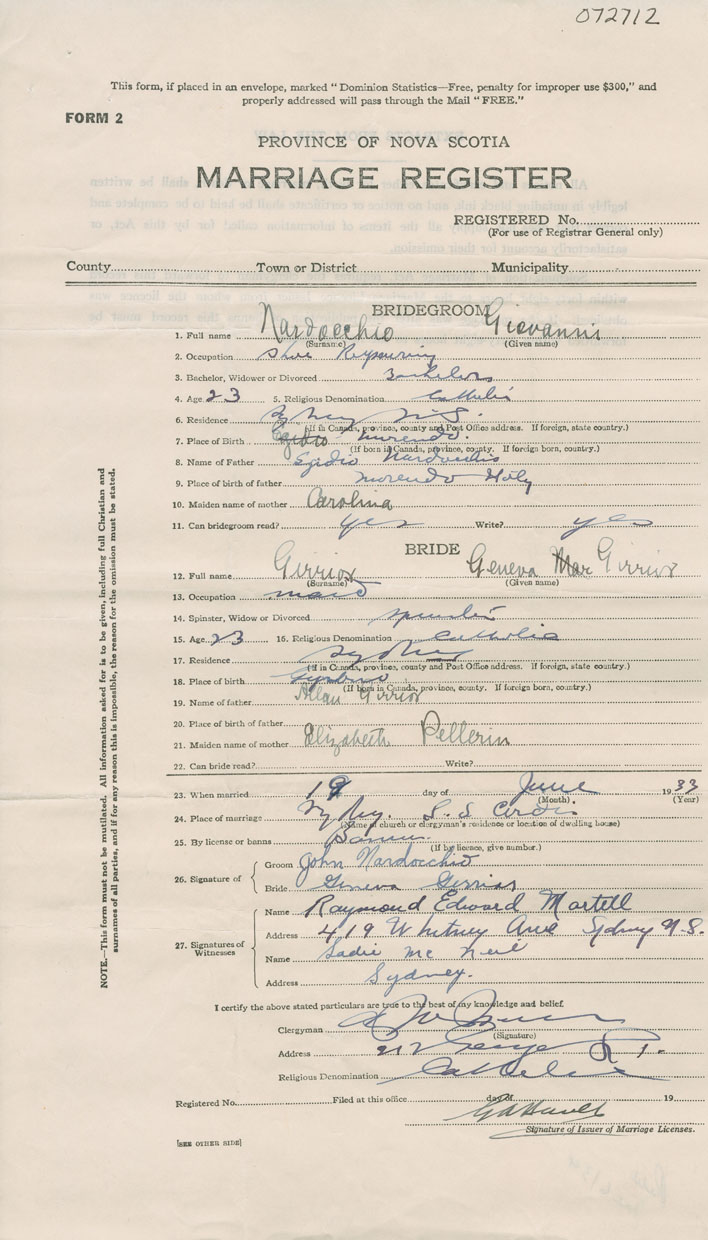 072712
This form, if placed in an envelope, marked "Dominion Statistics—Free, penalty for improper use $300," and
properly addressed will pass through the Mail "FREE."
FORM 2
PROVINCE OF NOVA SCOTIA
MARRIAGE REGISTER
REGISTERED No.
(For use of Registrar General only)
County Town or District Municipality
BRIDEGROOM
1. Full name Nardocchio Giovanni
(Surname) (Given name)
2. Occupation Shoe Repairing
3. Bachelor, Widower or Divorced Bachelor
4. Age 23 5. Religious Denomination Catholic
6. Residence Sydney N.S.
(If in Canada, province, county and Post Office address. If foreign, state country.)
7. Place of Birth Egidio Murendo.
(If born in Canada, province, county. If foreign born, country.)
8. Name of Father Egidio Nardocchio
9. Place of birth of father Murendo Italy
10. Maiden name of mother Carolina
11. Can bridegroom read? yes Write? yes
BRIDE
12. Full name Girrior Geneva Mae Girrior
(Surname) (Given name)
13. Occupation maid
14. Spinster, Widow or Divorced spinster
15. Age 23 16. Religious Denomination Catholic
17. Residence Sydney
(If in Canada, province, county and Post Office address. If foreign, state country.)
18. Place of birth
(If born in Canada, province, county. If foreign born, country.)
19. Name of father Allan Girrior
20. Place of birth of father
21. Maiden name of mother Elizabeth Pellerin
22. Can bride read? Write?
23. When married 19 day of June 1933
(Month) (Year)
24. Place of marriage Sydney.
(Name of church or clergyman's residence or location of dwelling house)
25. By license or banns Banns
(If by licence, give number.)
26. Signature of
Groom John Nardocchio
Bride Geneva Gerrior
27. Signatures of Witnesses
Name Raymond Edward Martell
Address 419 Whitney Ave Sydney N.S.
Name Sadie Mc Neil
Address Sydney.
I certify the above stated particulars are true to the best of my knowledge and belief.
Clergyman
(Signature)
Address George
Religious Denomination Catholic
Registered No. Filed at this office day of 19
Signature of Issuer of Marriage Licenses.
[SEE OTHER SIDE]
NOTE.—This form must not be mutilated. All information asked for is to be given, including full Christian and
surnames of all parties, and if for any reason this is impossible, the reason for the omission must be stated.